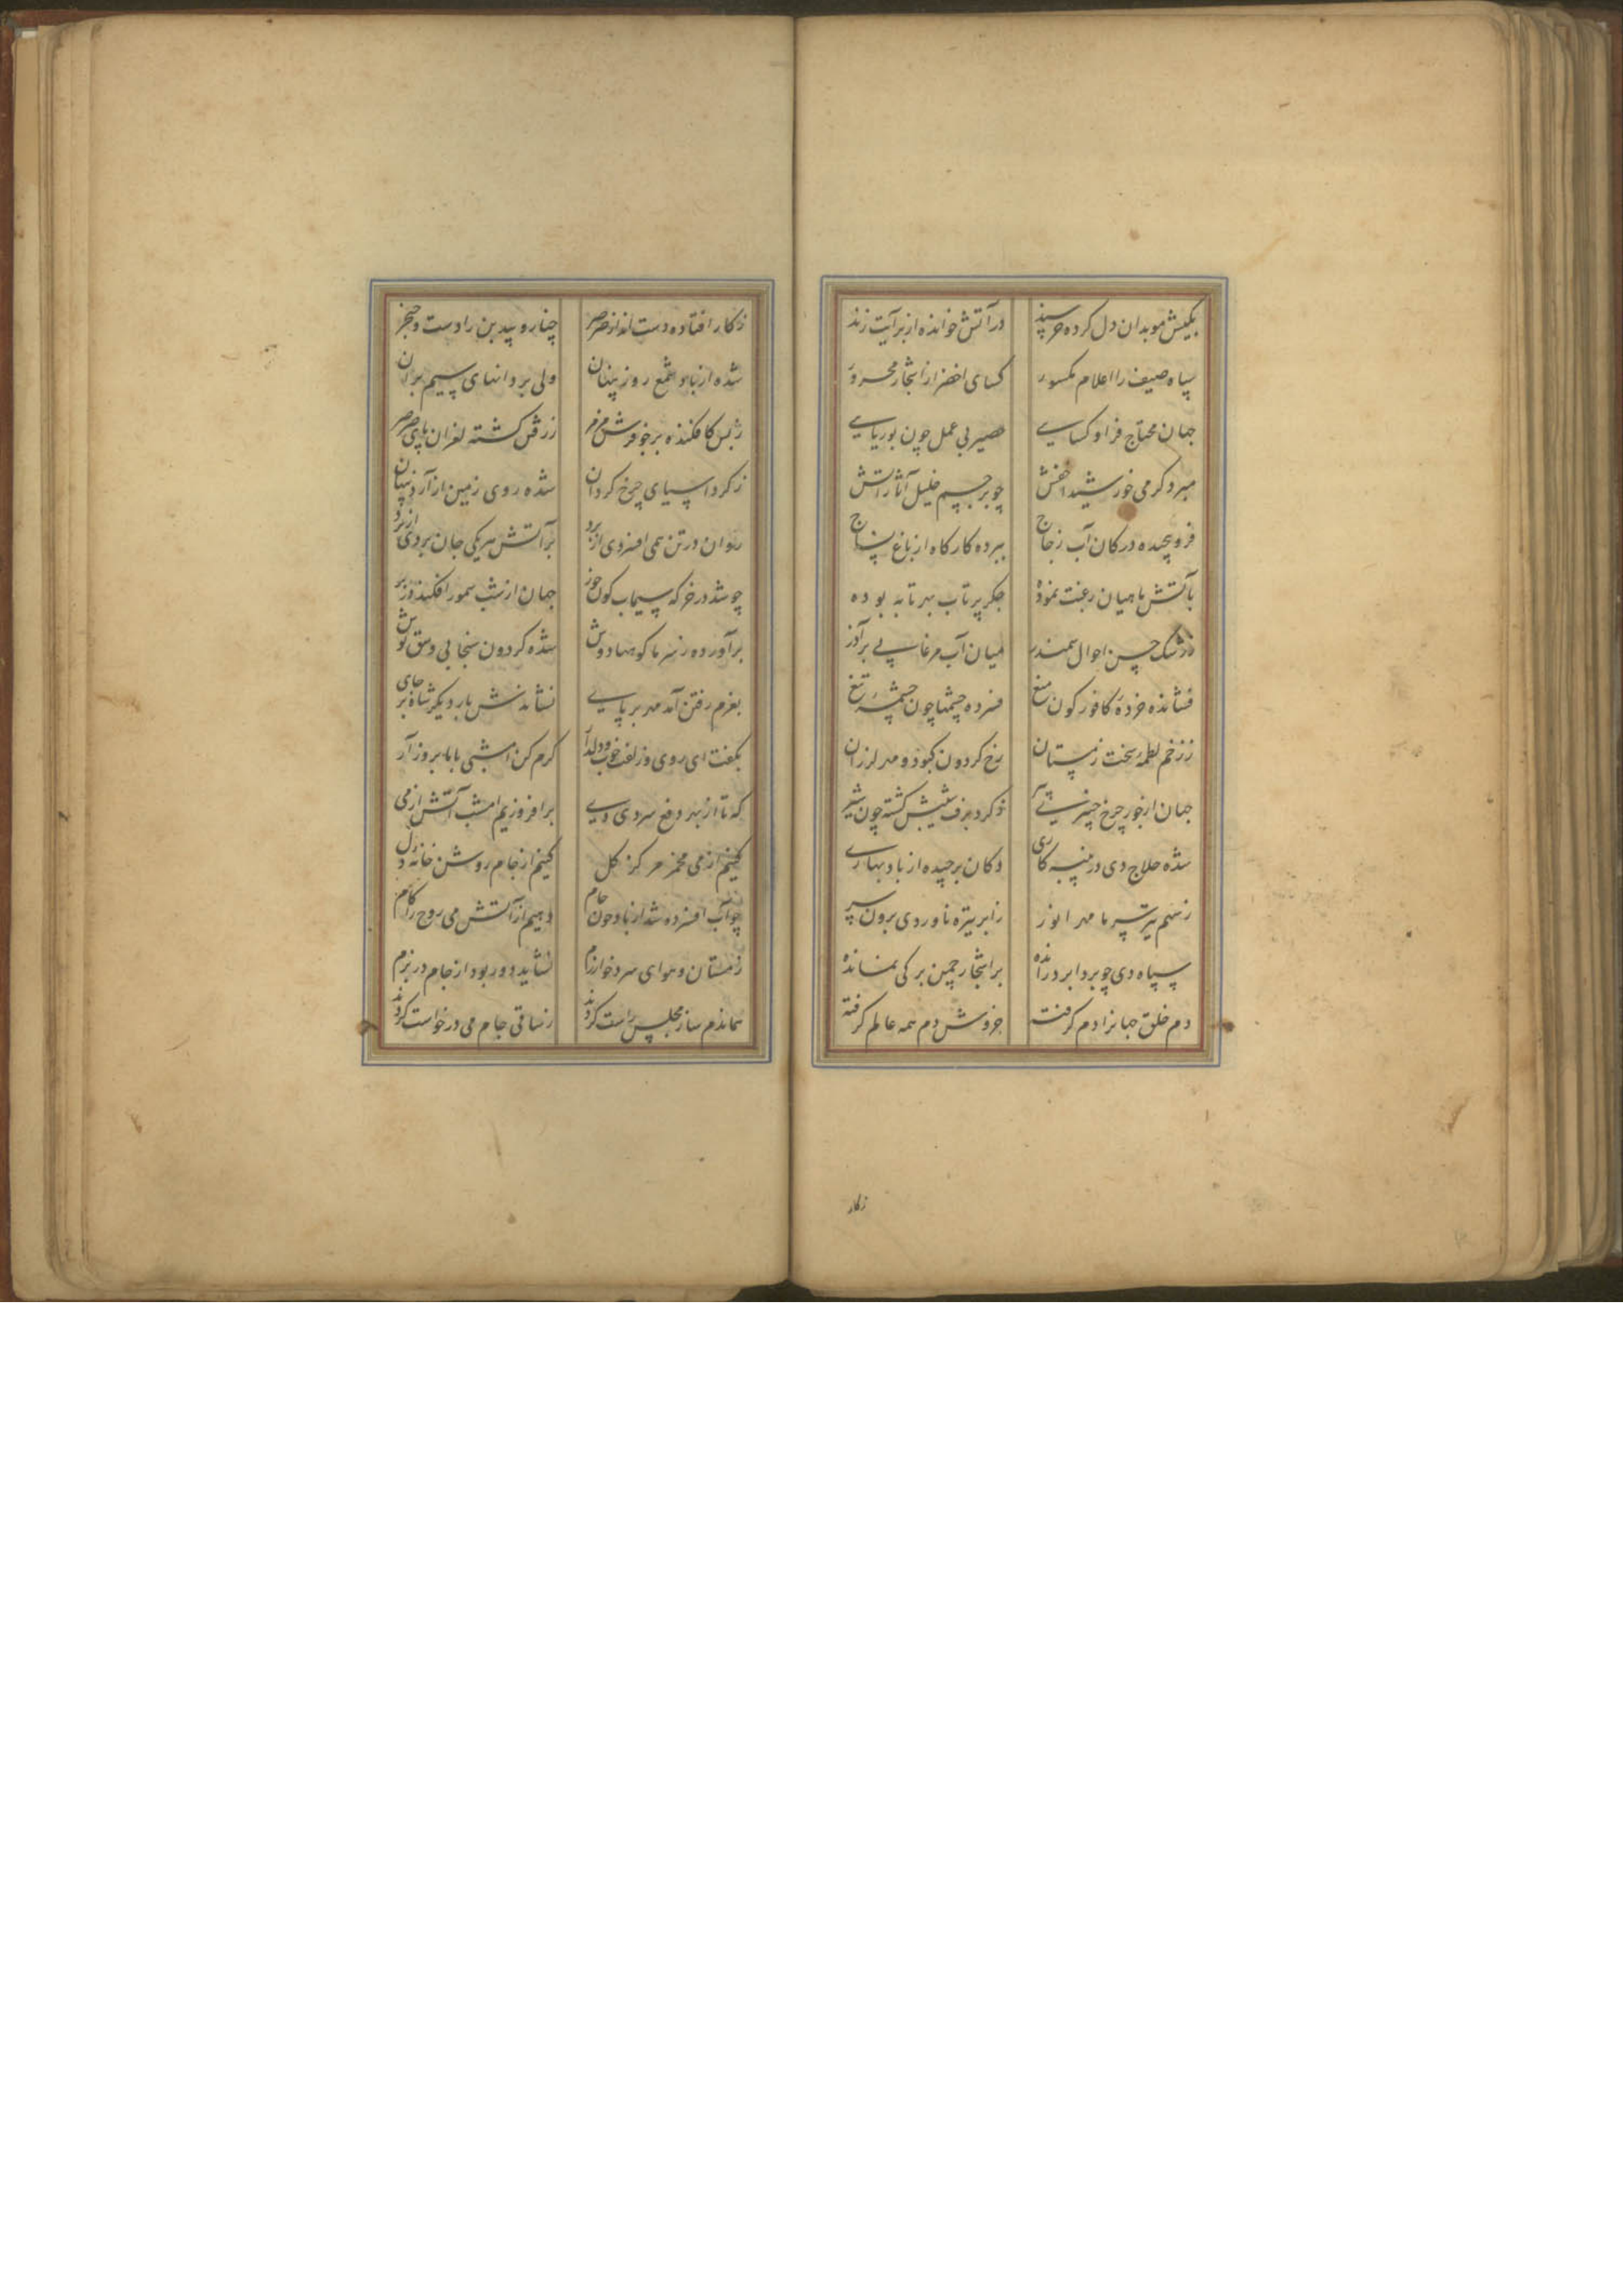 بکیش موبدان دل کرده خرسند در آتش خوانده از بر آیت زند
سپاه صیف را اعلام مکسور کسای اخضر از اشجار مجرور
جهان محتاج فرا و کسایی حصیر بی عمل چون بوریایی
مبرد کرمی خورشید چو بر جسم خلیل آثار آتش
فرو پیچیده در کان آب زجاج ببرده کارکاه از باغ نساج
بآتش ماهیان رغبت نموده جکر پرتاب بهر تابه بوده
ز رشک حسن احوال سمندر میان آب مرغابی بر آذر
فشانده خردهٔ کافور کون میغ فسرده چشمها چون چشمهٔ تیغ
ز زخم لطمهٔ سخت زمستان رخ کردون کبود و مهر لرزان
جهان از جور چرخ چنبری پیر ز کرد برف شیبش کشته چون شیر
شده حلاج دی در پنبه کاری دکان برچیده از باد بهاری
ز سهم تیر سرما مهر انور ز ابر تیره ناوردی برون سر
سپاه دی چو بردا برد رانده بر اشجار چمن برکی نمانده
دم خلق جهانرا دم کرفت خروش دم همه عالم کرفته
زکار
ز کار افتاده دست انداز صرصر چنار و بید بن را دست و خنجر
شده از باد شمع روز پنهان ولی پروانهای سیم بران
ز بس کافکنده برخو فرش مرمر ز رفتن کشته لغزان پای صرصر
ز کرد آسیای چرخ کردان شده روی زمین از آرد پنهان
روان در تن همی افسردی از برد بر آتش هر یکی جان بردی از برد
چو شد در خرکه سیماب کون خور جهان از شب سمور افکند در بر
برآورده ز سرما کوهها دوش شده کردون سنجابی وشق پوش
بعزم رفتن آمد مهر بر پای نشاندش بار دیکر شاه بر جای
بکفت ای روی و زلفت خوب و دلدار کرم کن امشبی با ما بروز آر
که تا از بهر دفع سردی دی برافروزیم امشب آتش از می
کنیم از می مخمر مرکز کل کنیم از جام روشن خانهٔ دل
چو آب افسرده شد از باد چون جام دهیم از آتش می روح را کام
زمستان و هوای سرد خوارزم نشاید دور بود از جام در بزم
هماندم ساز مجلس راست کردند ز ساقی جام می درخواست کردند